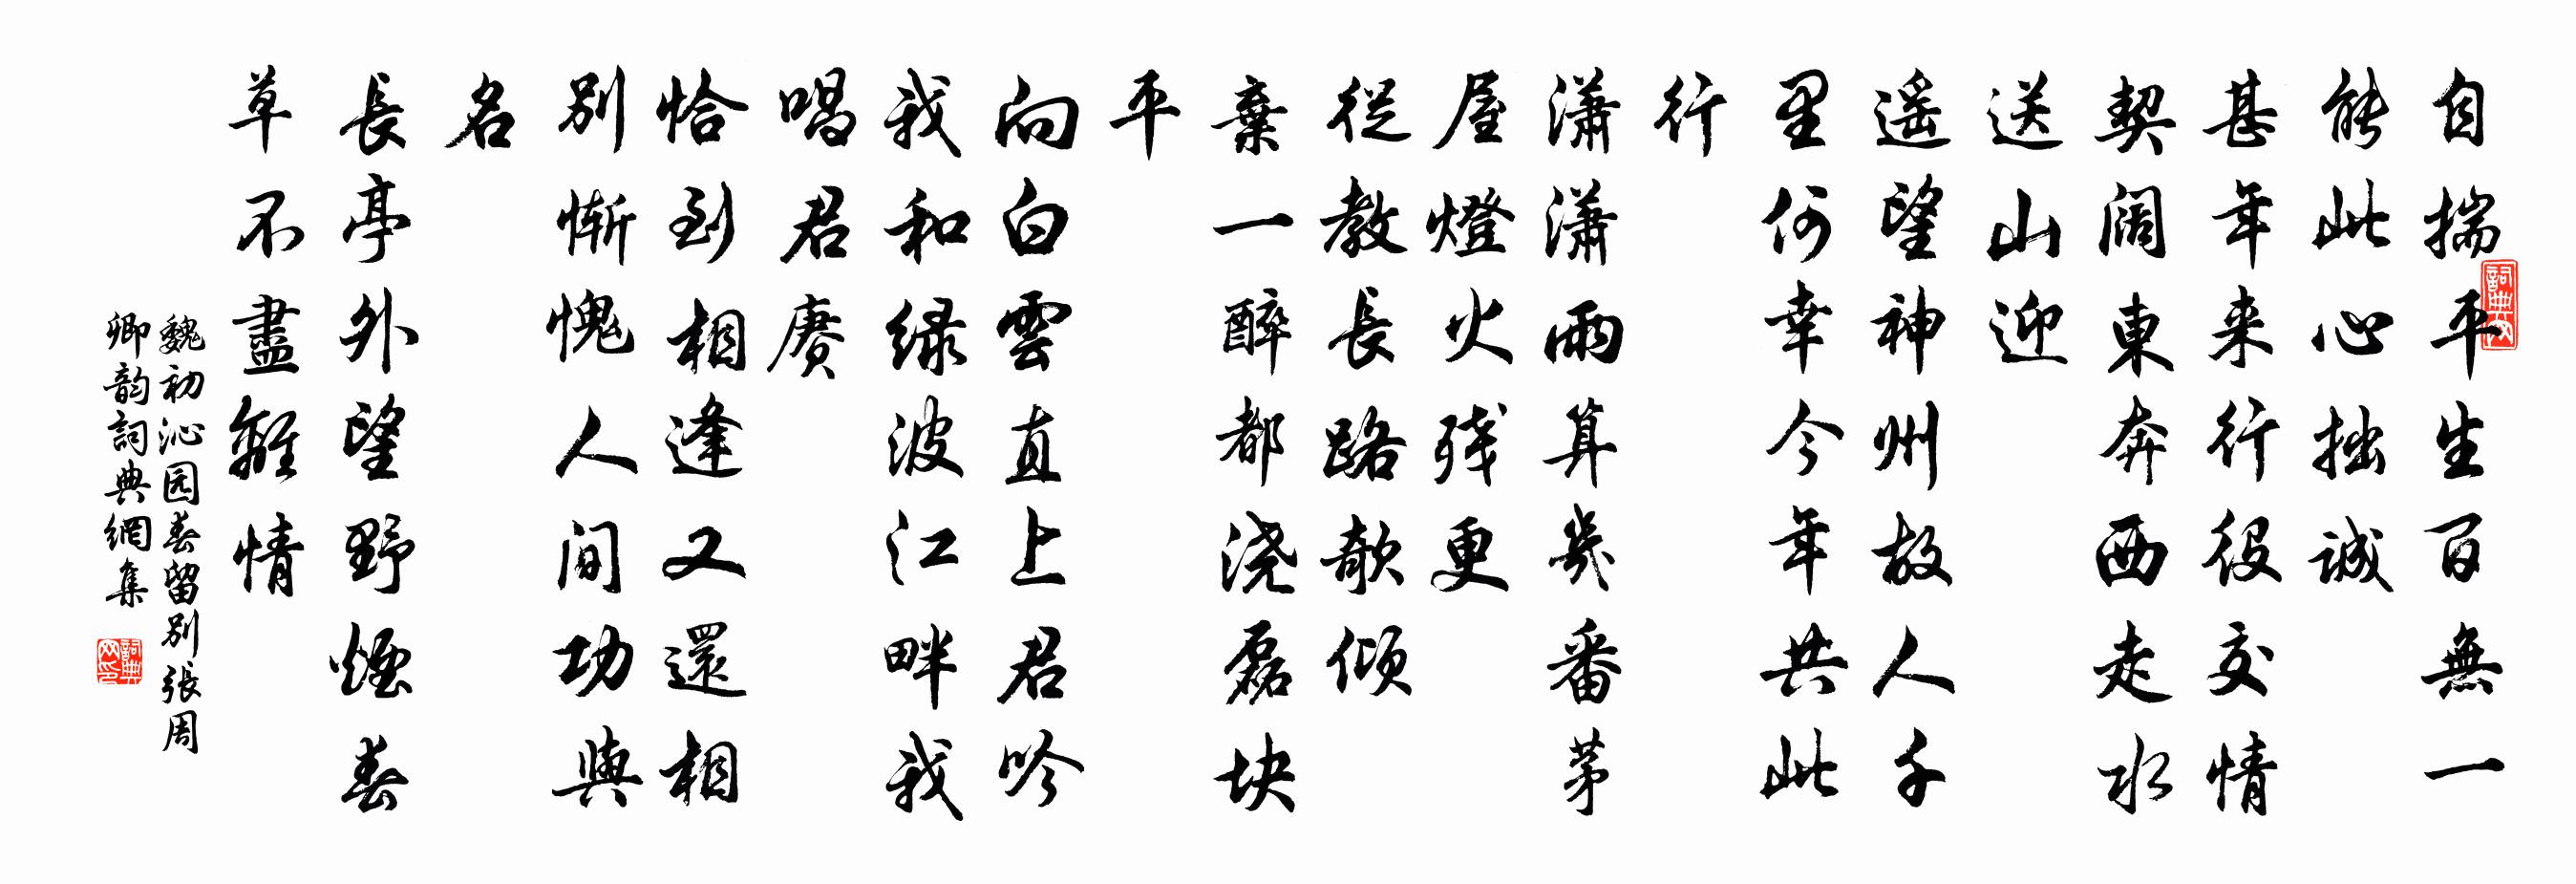 自揣平生百無一
能此心拙诚
甚年来行役交情
契阔東奔西走水
送山迎
遥望神州故人千
里何幸今年共此
行
潇潇雨算幾番茅
屋燈火残更
從教長路欹倾
棄一醉都浇磊块
平
向白雲直上君吟
我和绿波江畔我
唱君赓
恰到相逢又還相
别惭愧人间功與
名
長亭外望野煙春
草不盡離情
魏初沁园春留别張周
卿韵詞典網集